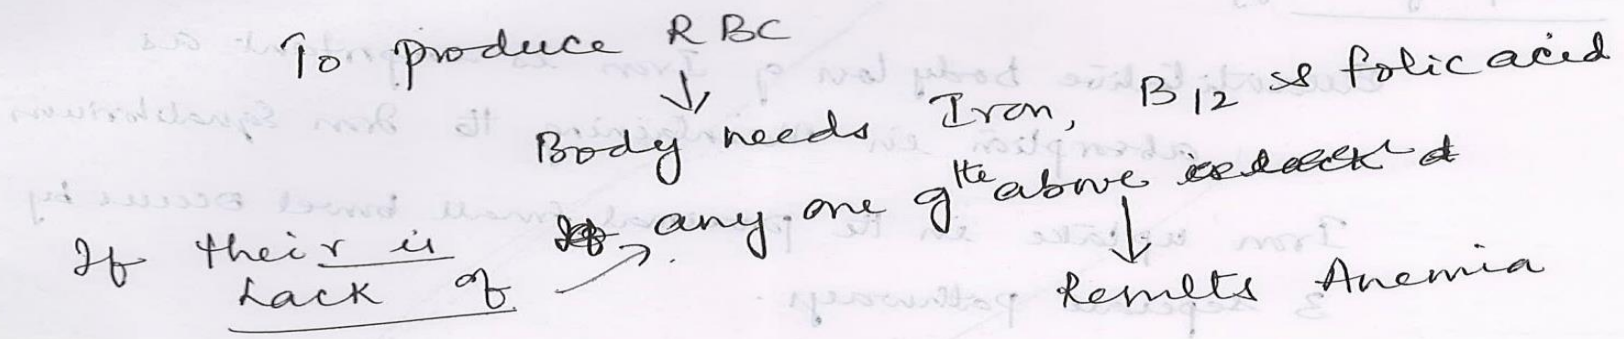 To produce RBC
↓
Body needs Iron, B12 & folic acid
If their is Lack of → any one of the above
↓
Results Anemia